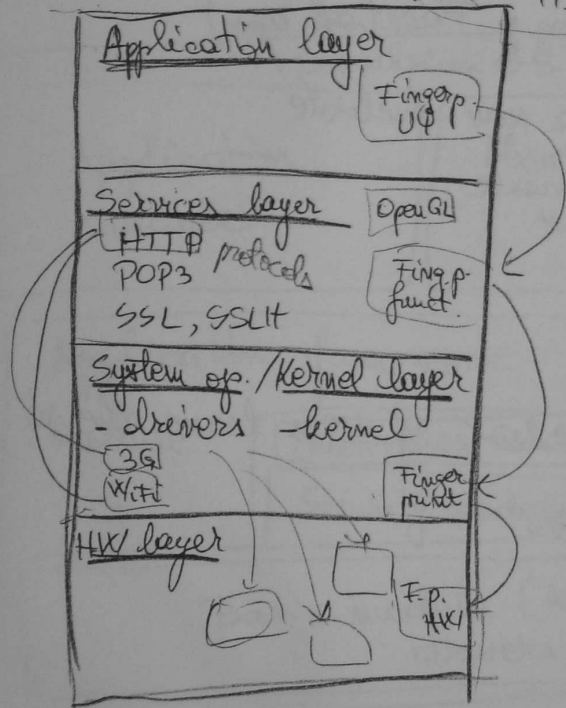 Application layer
Fingerp.
UI
Services layer
OpenGL
HTTP protocols
POP3
SSL, SSLH
Fing.p.
funct.
System op. / Kernel layer
- drevers - kernel
3G
WiFi
Finger
print
HW layer
F.p.
HW